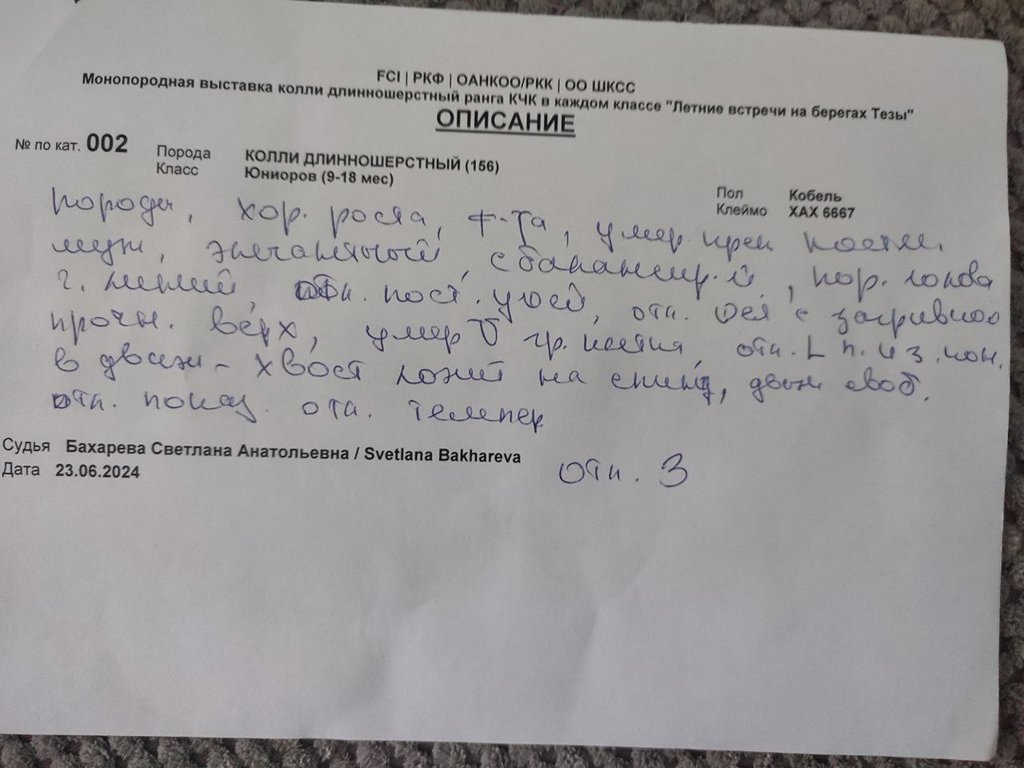 FCI | РКФ | ОАНКОО/РКК | ОО ШКСС
Монопородная выставка колли длинношерстный ранга КЧК в каждом классе "Летние встречи на берегах Тезы"
ОПИСАНИЕ
№ по кат. 002
Порода КОЛЛИ ДЛИННОШЕРСТНЫЙ (156)
Класс Юниоров (9-18 мес)
Пол Кобель
Клеймо XAX 6667
породн, хор. роста, ф-та, умер. креп костяк
элегантный, сбалансир-й, пор. голова
г. линий, отн. пост. ушей, отн. шея с загривком
прочн. верх, умер гр. клетка, отн. L п. и з. кон.
в движ - хвост ложит на спину, движ своб.
отн. показ. отл. темпер
Судья Бахарева Светлана Анатольевна / Svetlana Bakhareva
Дата 23.06.2024
отл. 3